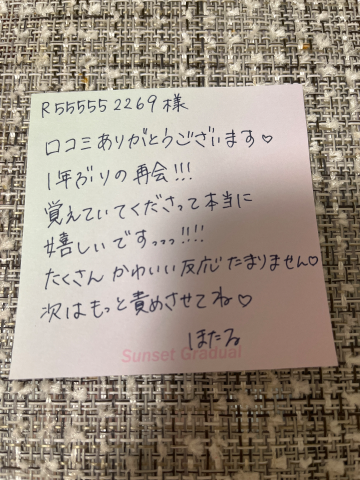 R55555 2269様
口コミありがとうございます♡
1年ぶりの再会!!!
覚えていてくださって本当に
嬉しいですっっっ!!!!
たくさんかわいい反応たまりません♡
次はもっと責めさせてね♡
ほたる
Sunset Gradual